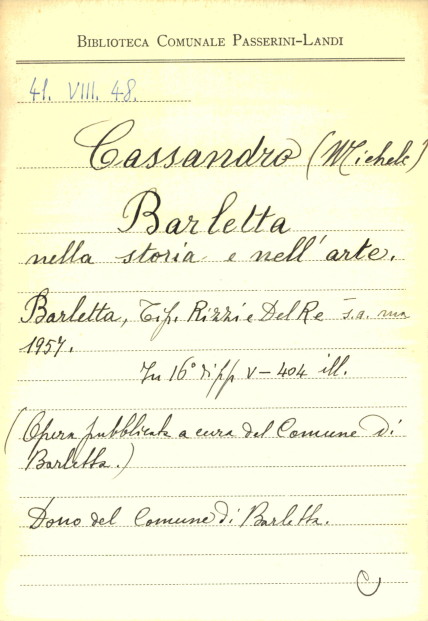 BIBLIOTECA COMUNALE PASSERINI-LANDI
41. VIII. 48.
Cassandro (Michele)
Barletta
nella storia e nell'arte.
Barletta, Tip. Rizzi e Del Re s.a. ma
1957.
In 16° di pp V-404 ill.
(Opera pubblicata a cura del Comune di
Barletta.)
Dono del Comune di Barletta.
C